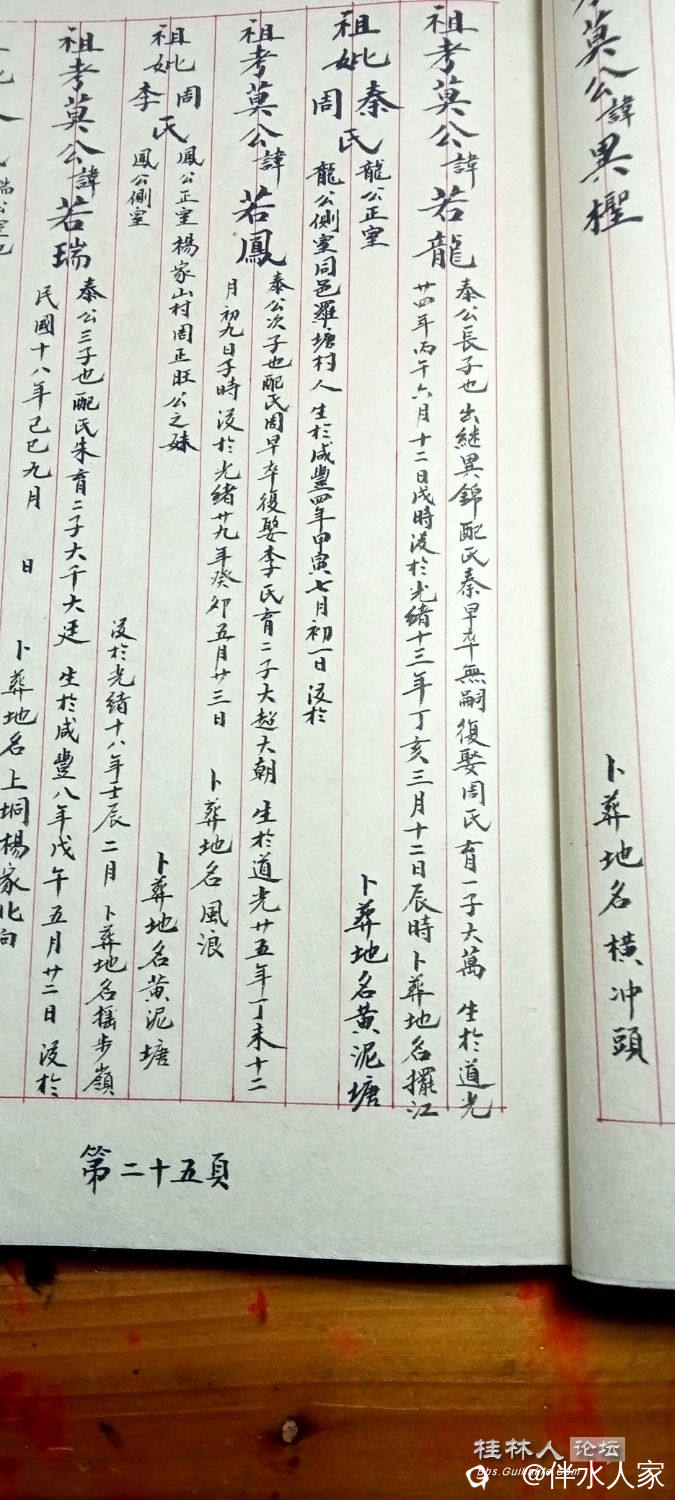 莫公諱異樫
卜葬地名橫冲頭
祖考莫公諱若龍
泰公長子也出継異錦配氏秦早卒無嗣復娶周氏育一子大萬 生於道光
廿四年丙午六月十二日戌時沒於光緒十三年丁亥三月十二日辰時卜葬地名擺江
祖妣秦氏 龍公正室
周氏 龍公側室同邑羅塘村人 生於咸豐四年甲寅七月初一日 沒於
卜葬地名黄泥塘
祖考莫公諱若鳳
泰公次子也配氏周早卒復娶李氏育二子大超大朝 生於道光廿五年丁未十二
月初九日子時沒於光緒廿九年癸卯五月廿三日 卜葬地名風浪
祖妣周氏 鳳公正室楊家山村周正旺公之妹
李氏 鳳公側室
卜葬地名黄泥塘
沒於光緒十八年壬辰二月 卜葬地名摇步嶺
祖考莫公諱若瑞
泰公三子也配氏朱育二子大千大廷 生於咸豐八年戊午五月廿二日 沒於
民國十八年己巳九月 日 卜葬地名上垌楊家化向
第二十五頁
桂林人论坛
bbs.Guilinlife.com
@伴水人家